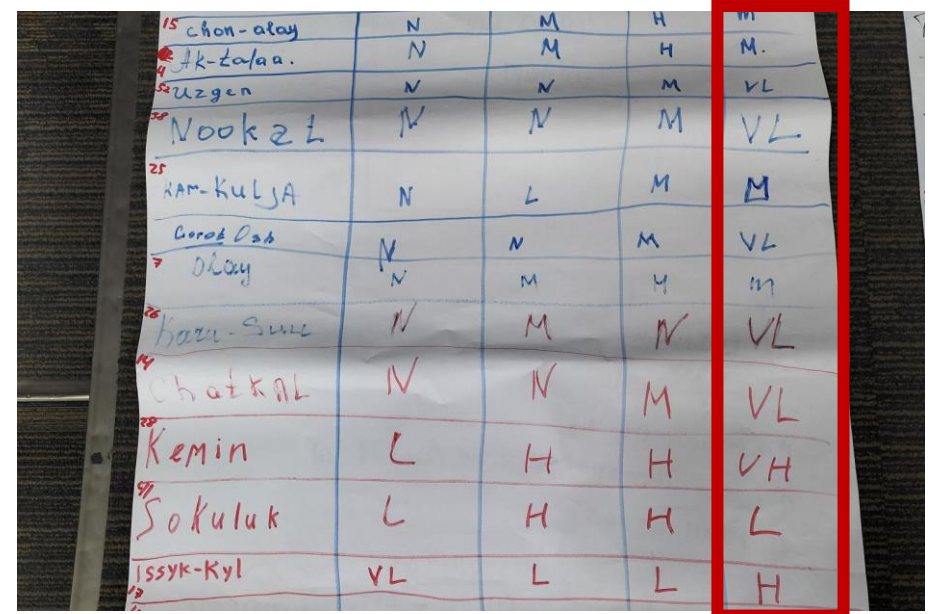 15 Chon-alay N M H m
4 Ak-talaa. N M H M.
52 Uzgen N N M VL
38 Nookat N N M VL
25 KAR-KulJA N L M M
Gorod Osh N N M VL
7 Olay N M H m
26 Kara-Suu N M N VL
14 ChatkAL N N M VL
28 Kemin L H H VH
Sokuluk L H H L
Issyk-Kyl VL L L H